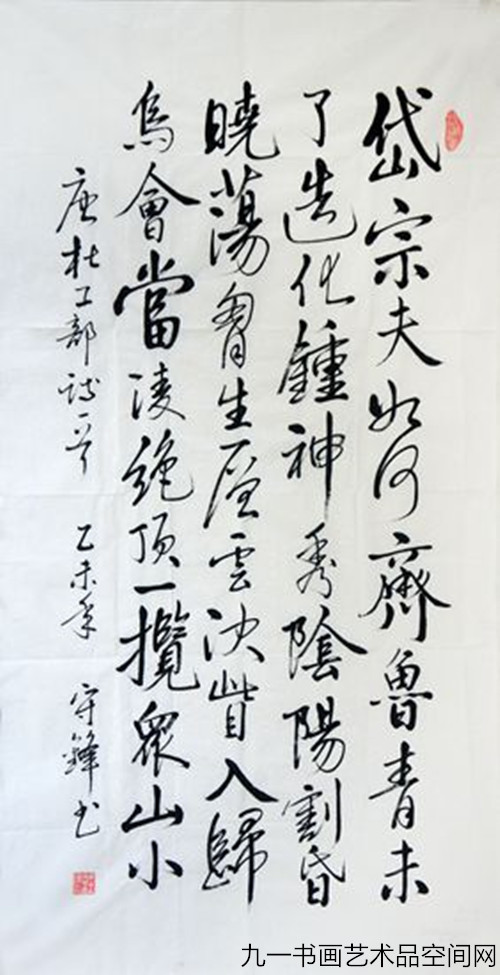 岱宗夫如何齊魯青未
了造化鍾神秀陰陽割昏
曉蕩胷生层雲決眥入歸
鳥會當凌絶頂一攬眾山小
唐杜工部詩一首 乙未年 守鋒书
九一书画艺术品空间网